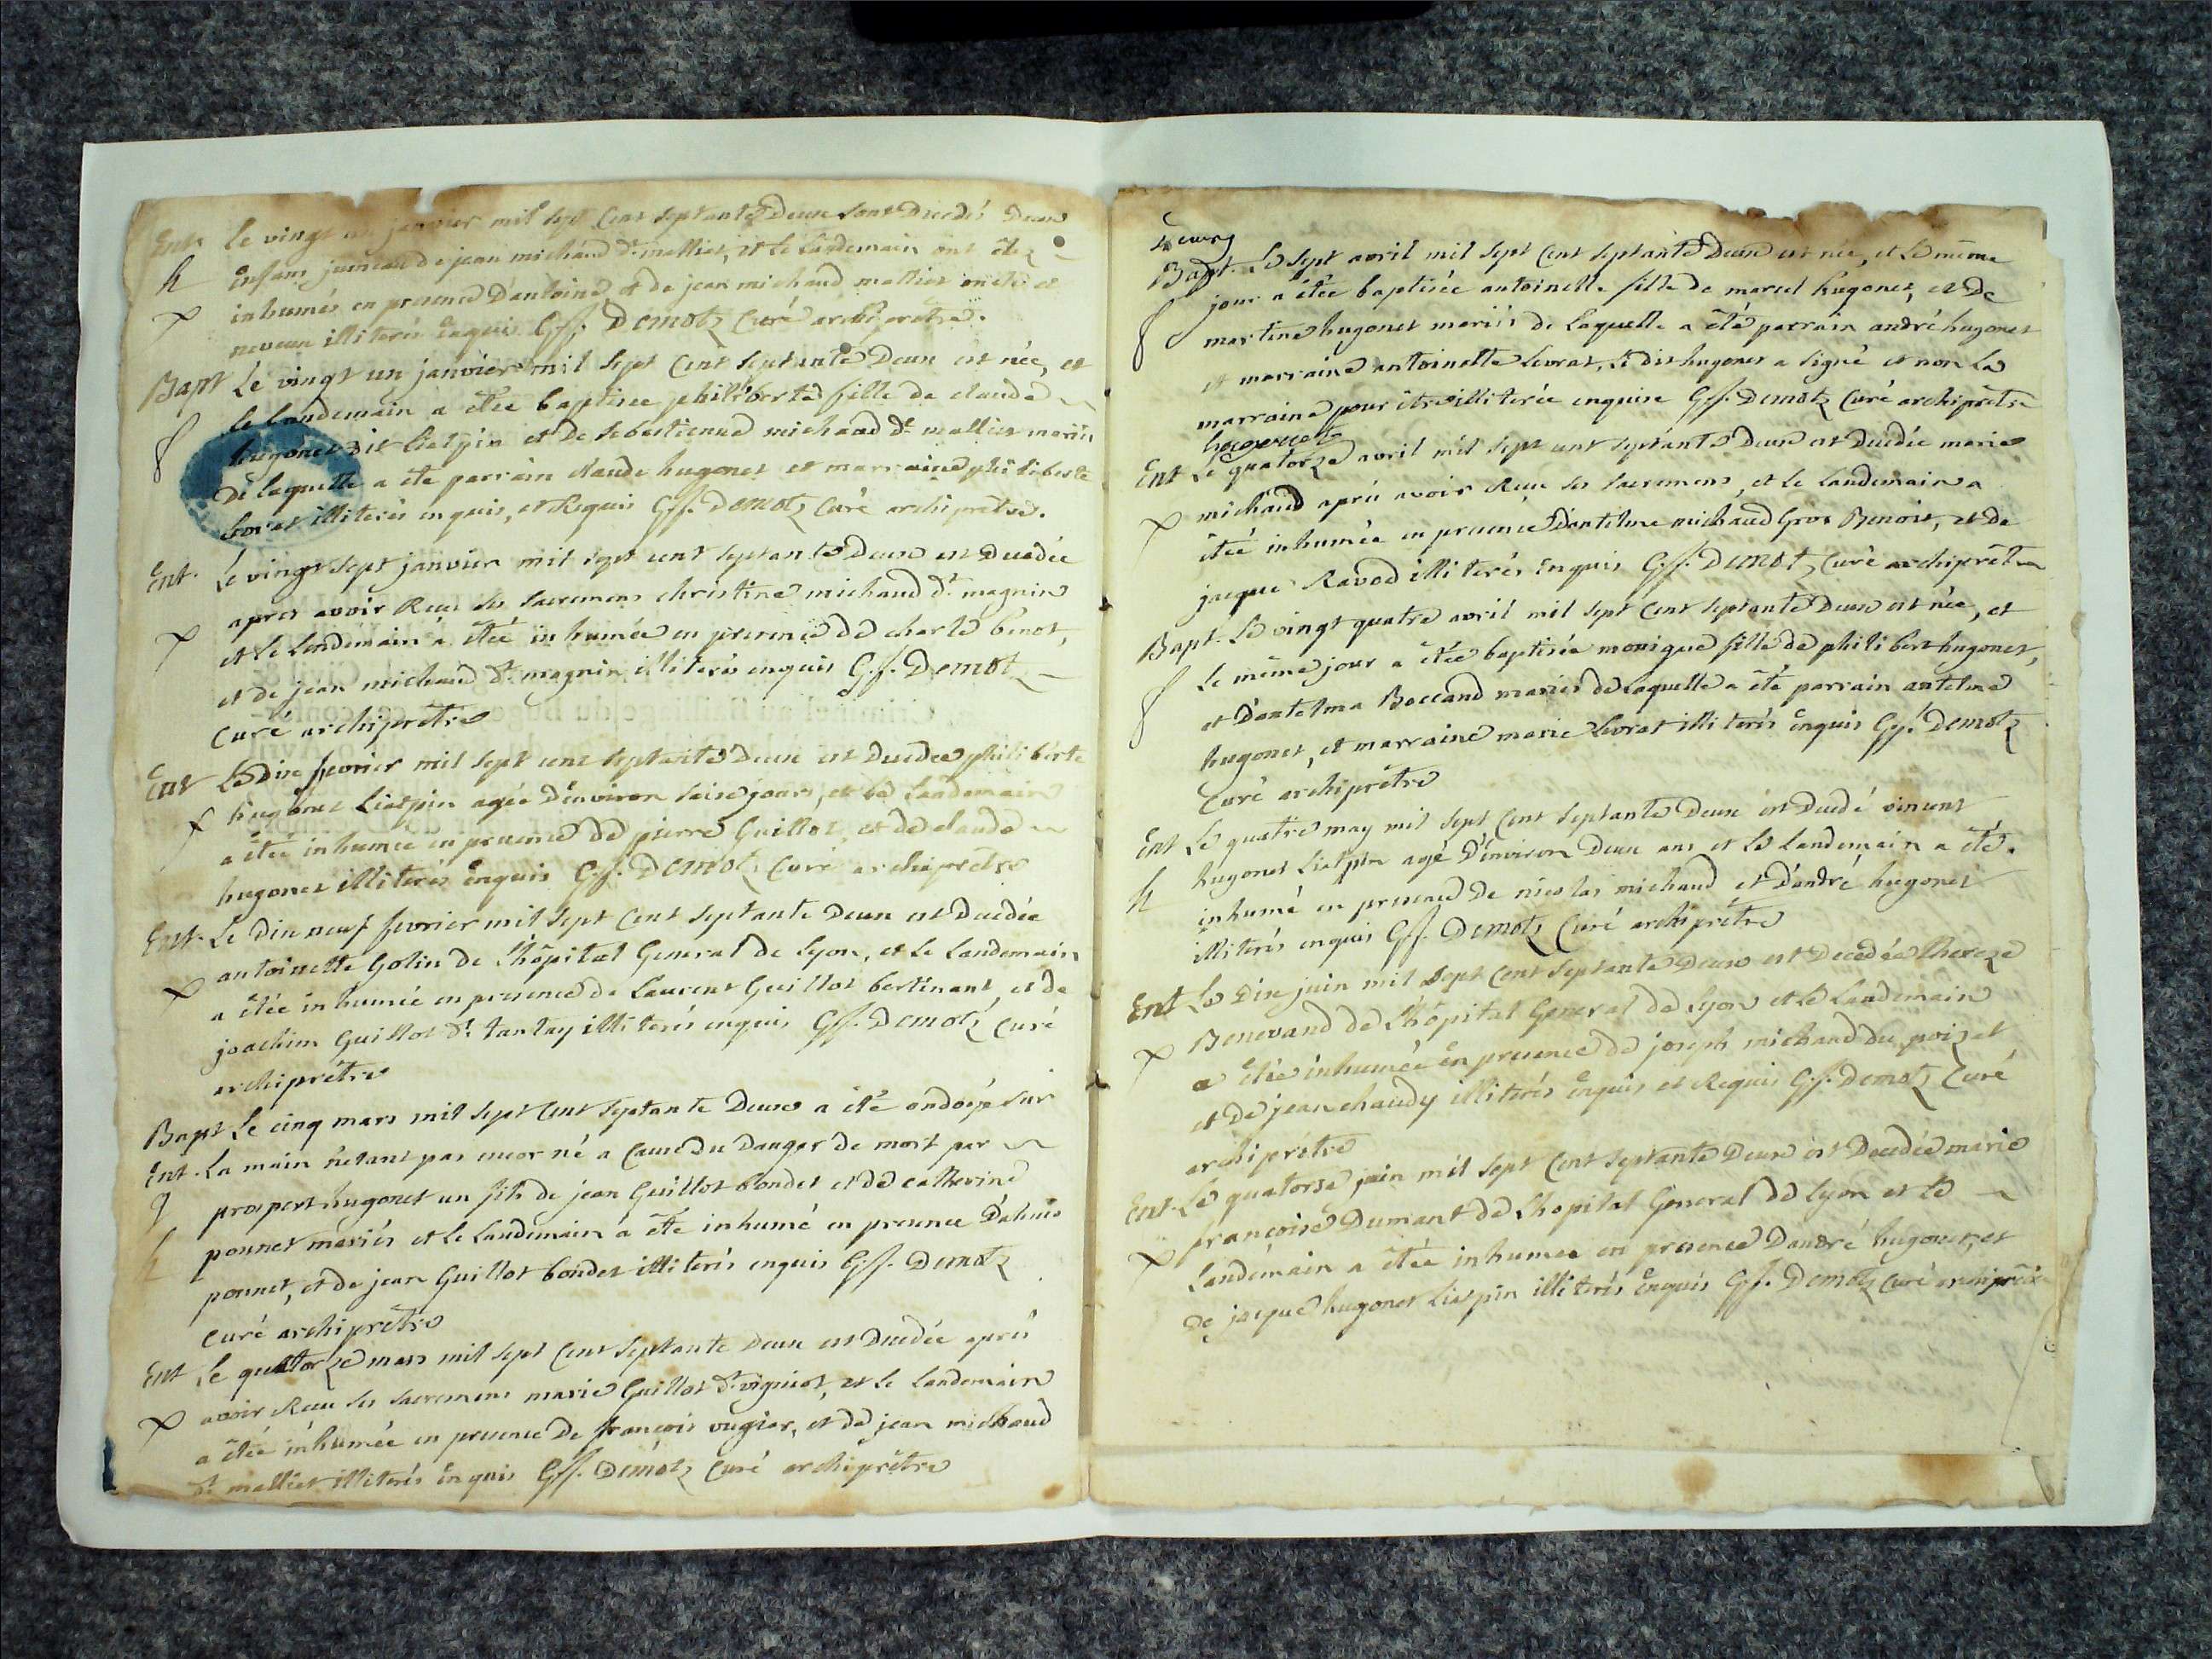 Ent. Le vingt un janvier mil sept Cent septante Deux sont Decedés Deux
h enfans jumeaux de jean michaud dt malliet, et le Landemain ont étés
inhumés en presence D'antoine et de jean michaud malliet oncle et
neveux illiterés enquis Gff. Demotz Curé archiprêtre.
Bapt Le vingt un janvier mil sept Cent septante Deux est née, et
f le Landemain a étée baptisée philiberte fille de claude
hugonet dit Liatpin et de sebastienne michaud dt malliet mariés
De laquelle a été parrain claude hugonet et marraine philiberte
Levrat illiterés enquis, et Requis Gff. Demotz Curé archiprêtre.
Ent. Le vingt sept janvier mil sept cent septante Deux est Decedée
apres avoir Reçu ses sacremens christine michaud dt magnin
et le Lendemain a étée inhumée en presence de charle benot,
et de jean michaud dt magnin illiterés enquis Gff. Demotz
Curé archiprêtre
Ent Le Dix fevrier mil sept cent septante Deux est Decedée philiberte
f hugonet Liatpin agée D'environ seise jours, et le Landemain
a étée inhumée en presence de pierre Guillot, et de claude
hugonet illiterés enquis Gff. Demotz Curé archiprêtre
Ent. Le Dix neuf fevrier mil sept Cent septante Deux est Decedée
antoinette Golin de L'hôpital General de Lyon, et le Landemain
a étée inhumée en presence de Laurent Guillot bertinant, et de
joachim Guillot dt tantay illiterés enquis Gff. Demotz Curé
archiprêtre
Bapt Le cinq mars mil sept Cent septante Deux a été ondoyé sur
Ent. La main n'etant pas encor né a Cause du Danger de mort par
prospert hugonet un fils de jean Guillot bondet et de catherine
h ponnet mariés et le Landemain a été inhumé en presence D'alexis
ponnet, et de jean Guillot bondet illiterés enquis Gff. Demotz
Curé archiprêtre
Ent Le quatorze mars mil sept Cent septante Deux est Decedée après
avoir Reçu ses sacremens marie Guillot dt vigniot, et le Landemain
a étée inhumée en presence De françois vugier, et de jean michaud
dt malliet illiterés enquis Gff. Demotz Curé archiprêtre
Bapt. Le sept avril mil sept Cent septante Deux est née, et le même
f jour a étée baptisée antoinette fille de marcel hugonet, et De
martine hugonet mariés de Laquelle a été parrain andré hugonet
et marraine antoinette Levrat, Le dit hugonet a signé et non La
marraine pour être illiterée enquise Gff. Demotz Curé archiprêtre
Ent Le quatorze avril mil sept cent septante Deux est Decedée marie
michaud après avoir Reçu ses sacremens, et le Landemain a
étée inhumée en presence D'antelme michaud Gros Benoit, et de
jacque Ravod illiterés Enquis Gff. Demotz Curé archiprêtre
Bapt. Le vingt quatre avril mil sept Cent septante Deux est née, et
f Le même jour a étée baptisée monique fille de philibert hugonet,
et D'antelma Boccand mariés de Laquelle a été parrain antelme
hugonet, et marraine marie Levrat illiterés enquis Gff. Demotz
Curé archiprêtre
Ent Le quatre may mil sept Cent septante Deux est Decedé vincent
h hugonet Liatpin agé D'environ Deux ans et le Landemain a été
inhumé en presence de nicolas michaud et D'andré hugonet
illiterés enquis Gff. Demotz Curé archiprêtre
Ent Le Dix juin mil sept Cent septante Deux est Decedée thereze
Benevand de L'hôpital General de Lyon et le Landemain
a étée inhumée en presence de joseph michaud du poizet
et de jean chaudy illiterés enquis et Requis Gff. Demotz Curé
archiprêtre
Ent. Le quatorse juin mil sept Cent septante Deux est Decedée marie
françoise Dumant de L'hopital General de Lyon et le
Landemain a étée inhumée en presence D'andré hugonet, et
De jacque hugonet Liatpin illiterés enquis Gff. Demotz Curé archiprêtre